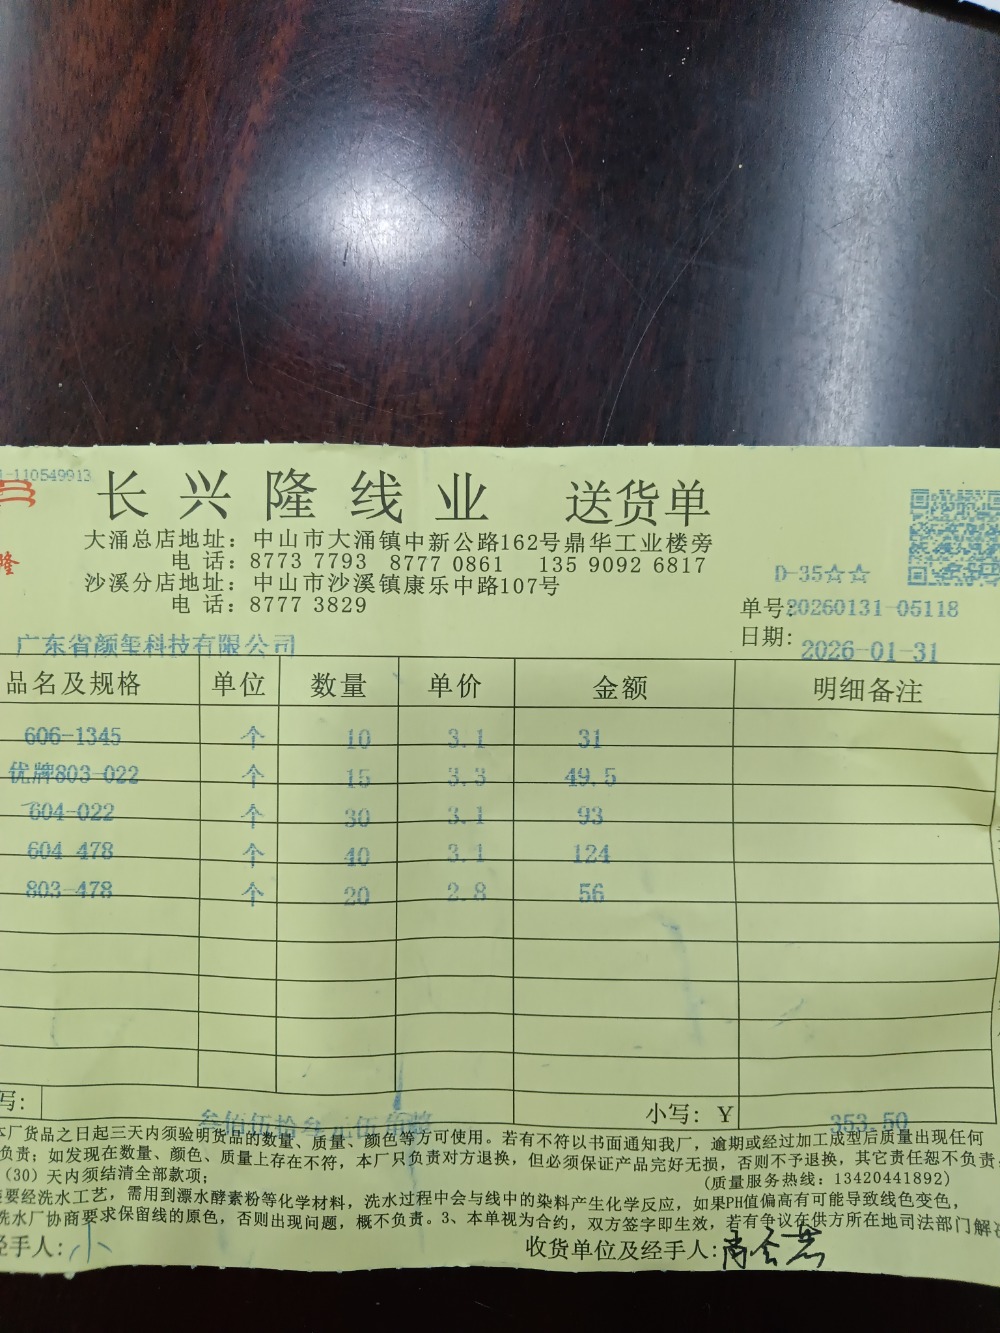 1-110549913
长兴隆线业 送货单
隆
大涌总店地址：中山市大涌镇中新公路162号鼎华工业楼旁
电 话：8773 7793 8777 0861 135 9092 6817
沙溪分店地址：中山市沙溪镇康乐中路107号
电 话：8777 3829
D-35☆☆
单号:20260131-05118
日期: 2026-01-31
广东省颜玺科技有限公司
品名及规格 单位 数量 单价 金额 明细备注
606-1345 个 10 3.1 31
优牌803-022 个 15 3.3 49.5
604-022 个 30 3.1 93
604-478 个 40 3.1 124
803-478 个 20 2.8 56
写: 叁佰伍拾叁元伍角整 小写: Y 353.50
本厂货品之日起三天内须验明货品的数量、质量、颜色等方可使用。若有不符以书面通知我厂，逾期或经过加工成型后质量出现任何
负责；如发现在数量、颜色、质量上存在不符，本厂只负责对方退换，但必须保证产品完好无损，否则不予退换，其它责任恕不负责
（30）天内须结清全部款项； (质量服务热线：13420441892)
要经洗水工艺，需用到漂水酵素粉等化学材料，洗水过程中会与线中的染料产生化学反应，如果PH值偏高有可能导致线色变色，
洗水厂协商要求保留线的原色，否则出现问题，概不负责。3、本单视为合约，双方签字即生效，若有争议在供方所在地司法部门解决
经手人: 小 收货单位及经手人: